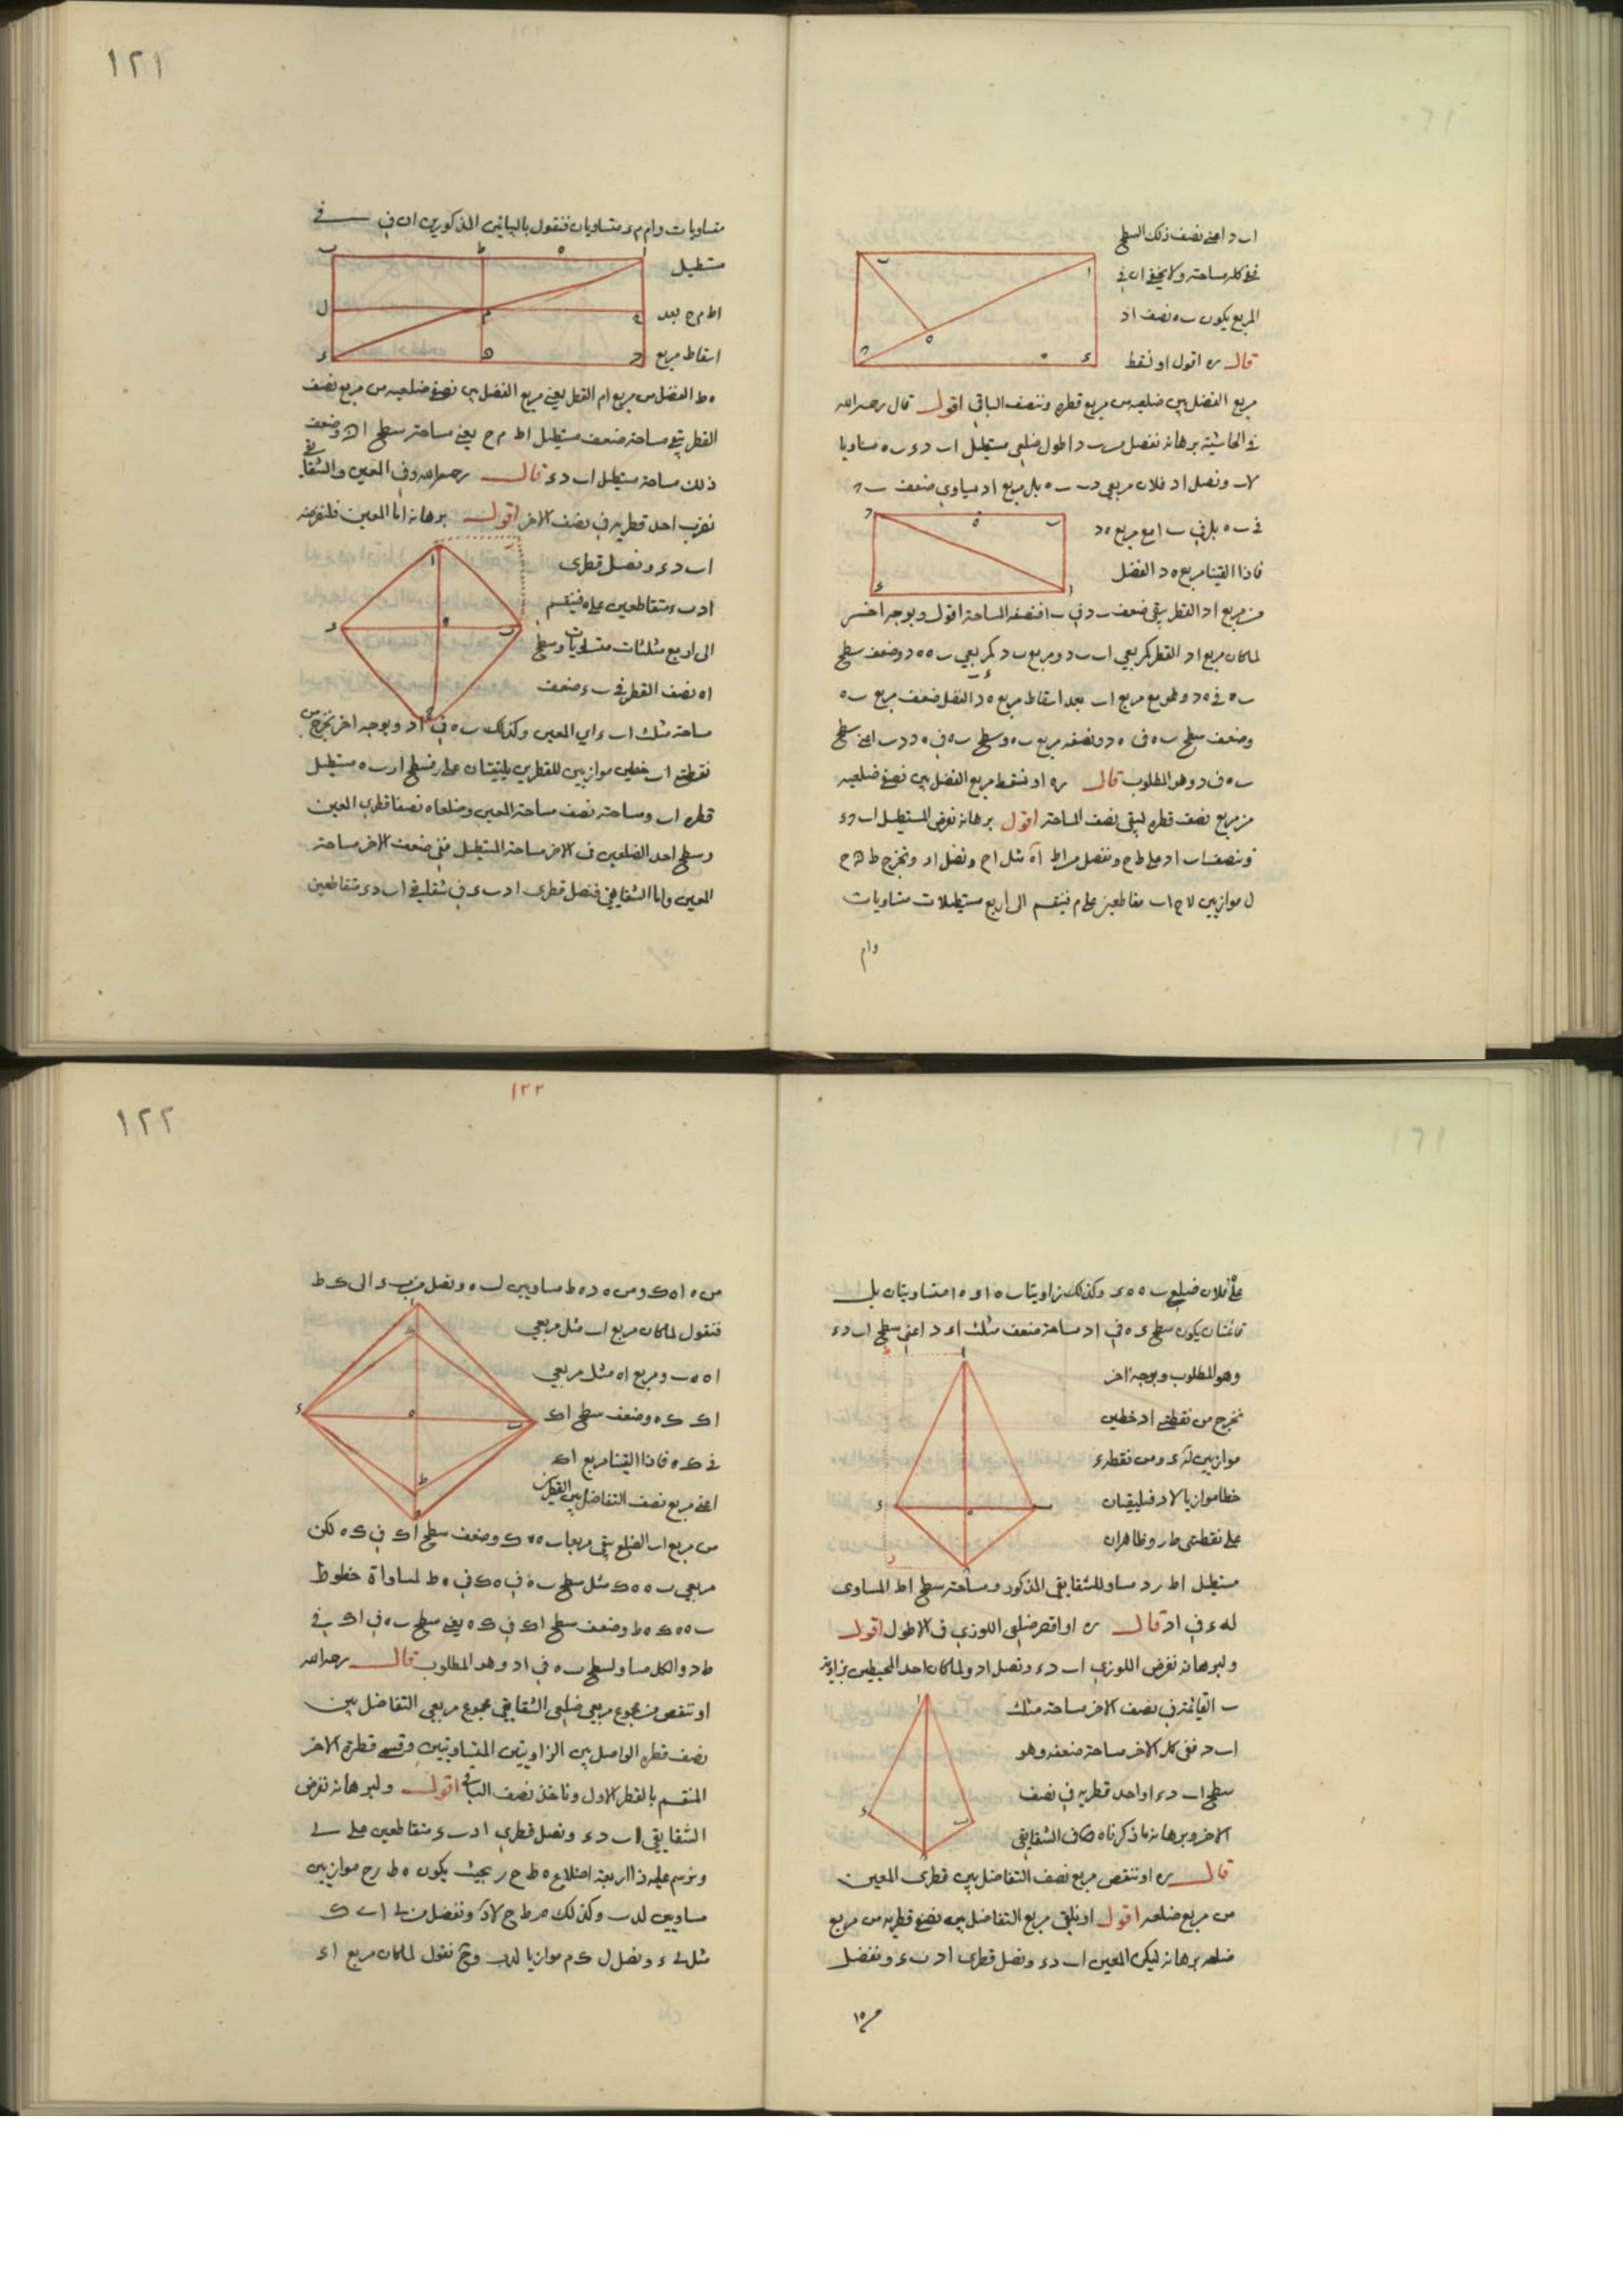 اب د اعنى نصف ذلك السطح
ففى كله مساحته ولا يخفى ان فى
المربع يكون ب ه نصف اد
قال ره اقول او نسقط
مربع الفضل بين ضلعيه من مربع قطره وننصف الباقى اقول قال رحمه الله
فى الحاشية برهانه نفصل من ب د اطول ضلعى مستطيل اب د ء ب ه مساويا
لاب ونصل اد فلان مربعى د ب ب ه بل مربع اد يساوى ضعف ب د
فى ب ه بل فى ب ا مع مربع ه د
فاذا القينا مربع ه د الفضل
من مربع اد القطر بقى ضعف ب د فى ب ا فنصفه المساحة اقول وبوجه اخر
لما كان مربع اد القطر كمربعى اب ب د ومربع ب د كمربعى ب ه ه د وضعف سطح
ب ه فى ه د وهو مع مربع اب بعد اسقاط مربع ه د الفضل ضعف مربع ب ه
وضعف سطح ب ه فى ه د ونصفه مربع ب ه وسطح ب ه فى ه د د ب اعنى سطح
ب ه فى د وهو المطلوب قال ره او نسقط مربع الفضل بين نصفى ضلعيه
من مربع نصف قطره ليبقى نصف المساحة اقول برهانه نفرض المستطيل اب د ء
وننصف اب اد على ط ح ونفصل من اط اه مثل اح ونصل اد ونخرج ط ه ح
ل موازيين لاح اب متقاطعين على م فينقسم الى اربع مستطيلات متساويات
وام
١٢١
متساويات وام م ء متساويان فنقول بالبيانين المذكورين ان فى
مستطيل
اط م ح بعد
اسقاط مربع
ه ط الفضل من مربع ام القطر يعنى مربع الفضل بين نصفى ضلعيه من مربع نصف
القطر يبقى مساحة ضعف مستطيل اط م ح يعنى مساحة سطح اه وضعف
ذلك مساحة مستطيل اب د ء قال رحمه الله وفى المعين والشقايقى
نضرب احد قطريه فى نصف الاخر اقول برهانه اما المعين فلنفرضه
اب د ء ونصل قطرى
اد ب ء متقاطعين على ه فينقسم
الى اربع مثلثات متساويات وسطح
اه نصف القطر فى ب ء ضعف
مساحة مثلث اب ء اى المعين وكذلك ب ه فى اد وبوجه اخر نخرج من
نقطتى اب خطين موازيين للقطرين يلتقيان على ر فسطح ار ب ه مستطيل
قطره اب ومساحته نصف مساحة المعين وضلعاه نصفا قطرى المعين
وسطح احد الضلعين فى الاخر مساحة المستطيل ففى ضعف الاخر مساحة
المعين واما الشقايقى فنصل قطرى اد ب ء فى شقايقى اب د ء متقاطعين
على ه فلان ضلعى ب ه ه ء وكذلك زاويتا ب ه ا ء ه ا متساويتان بل
قائمتان يكون سطح ء ه فى اد مساحة ضعف مثلث اء د اعنى سطح اب د ء
وهو المطلوب وبوجه اخر
نخرج من نقطتى اد خطين
موازيين له ء ومن نقطة ء
خطا موازيا لاد فيلتقيان
على نقطتى ط ر وظاهر ان
مستطيل اط ر د مساو للشقايقى المذكور ومساحته سطح اط المساوى
له ء فى اد قال ره او اقصر ضلعى اللوزى فى الاطول اقول
ولبرهانه نفرض اللوزى اب د ء ونصل اد ولما كان احد المحيطين بزاوية
ب القائمة فى نصف الاخر مساحة مثلث
اب د ففى كل الاخر مساحة ضعفه وهو
سطح اب د ء او احد قطريه فى نصف
الاخر وبرهانه ما ذكرناه فى الشقايقى
قال ره او ننقص مربع نصف التفاضل بين قطرى المعين
من مربع ضلعه اقول او نلقى مربع التفاضل بين نصفى قطريه من مربع
ضلعه برهانه ليكن المعين اب د ء ونصل قطرى اد ب ء ونفصل
من ه ا
١٢٢
١٢٢
من ه ا ه ك ومن ه د ه ط مساويين لب ه ونصل من ب ء الى ك ط
فنقول لما كان مربع اب مثل مربعى
اه ه ب ومربع اه مثل مربعى
اك ك ه وضعف سطح اك
فى ك ه فاذا القينا مربع اك
اعنى مربع نصف التفاضل بين القطرين
من مربع اب الضلع بقى مربعا ب ه ه ك وضعف سطح اك فى ك ه لكن
مربعى ب ه ه ك مثل سطح ب ه فى ه ك فى ه ط لمساواة خطوط
ب ه ه ك ه ط وضعف سطح اك فى ك ه يعنى سطح ب ه فى اك فى
ط د والكل مساو لسطح ب ه فى اد وهو المطلوب قال رحمه الله
او ننقص من مجموع مربعى ضلعى الشقايقى مجموع مربعى التفاضل بين
نصف قطره الواصل بين الزاويتين المتساويتين وقسمى قطره الاخر
المنقسم بالقطر الاول وناخذ نصف الباقى اقول ولبرهانه نفرض
الشقايقى اب د ء ونصل قطرى اد ب ء متقاطعين على ى
ونرسم عليه ذا اربعة اضلاع ه ط ح ر بحيث يكون ه ط ر ح موازيين
مساويين لدب وكذلك ه ر ط ح لاد ونفصل من ى ا ى ك
مثل ى ء ونصل ل ك م موازيا لدب وح نقول لما كان مربع اء